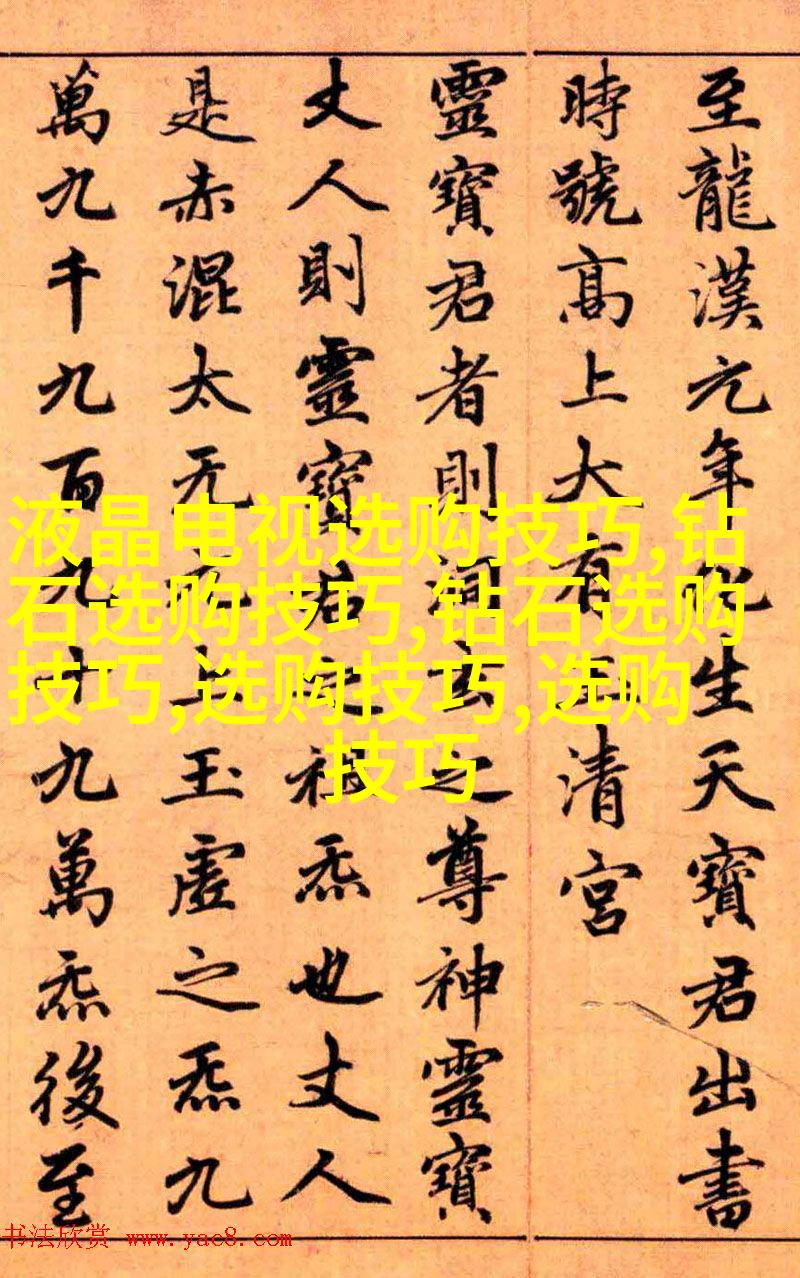 至龍漢元年化生天寶君出書
時號高上大有玉清宮
靈寶君者則洞玄之尊神靈寶
丈人則靈寶君之祖炁也丈人
是赤混太无元上玉虛之炁九
萬九千九百九十九萬炁後至
液晶电视选购技巧,钻
石选购技巧,钻石选购
技巧,选购技巧,选购
技巧
书法欣赏 www.yac8.com